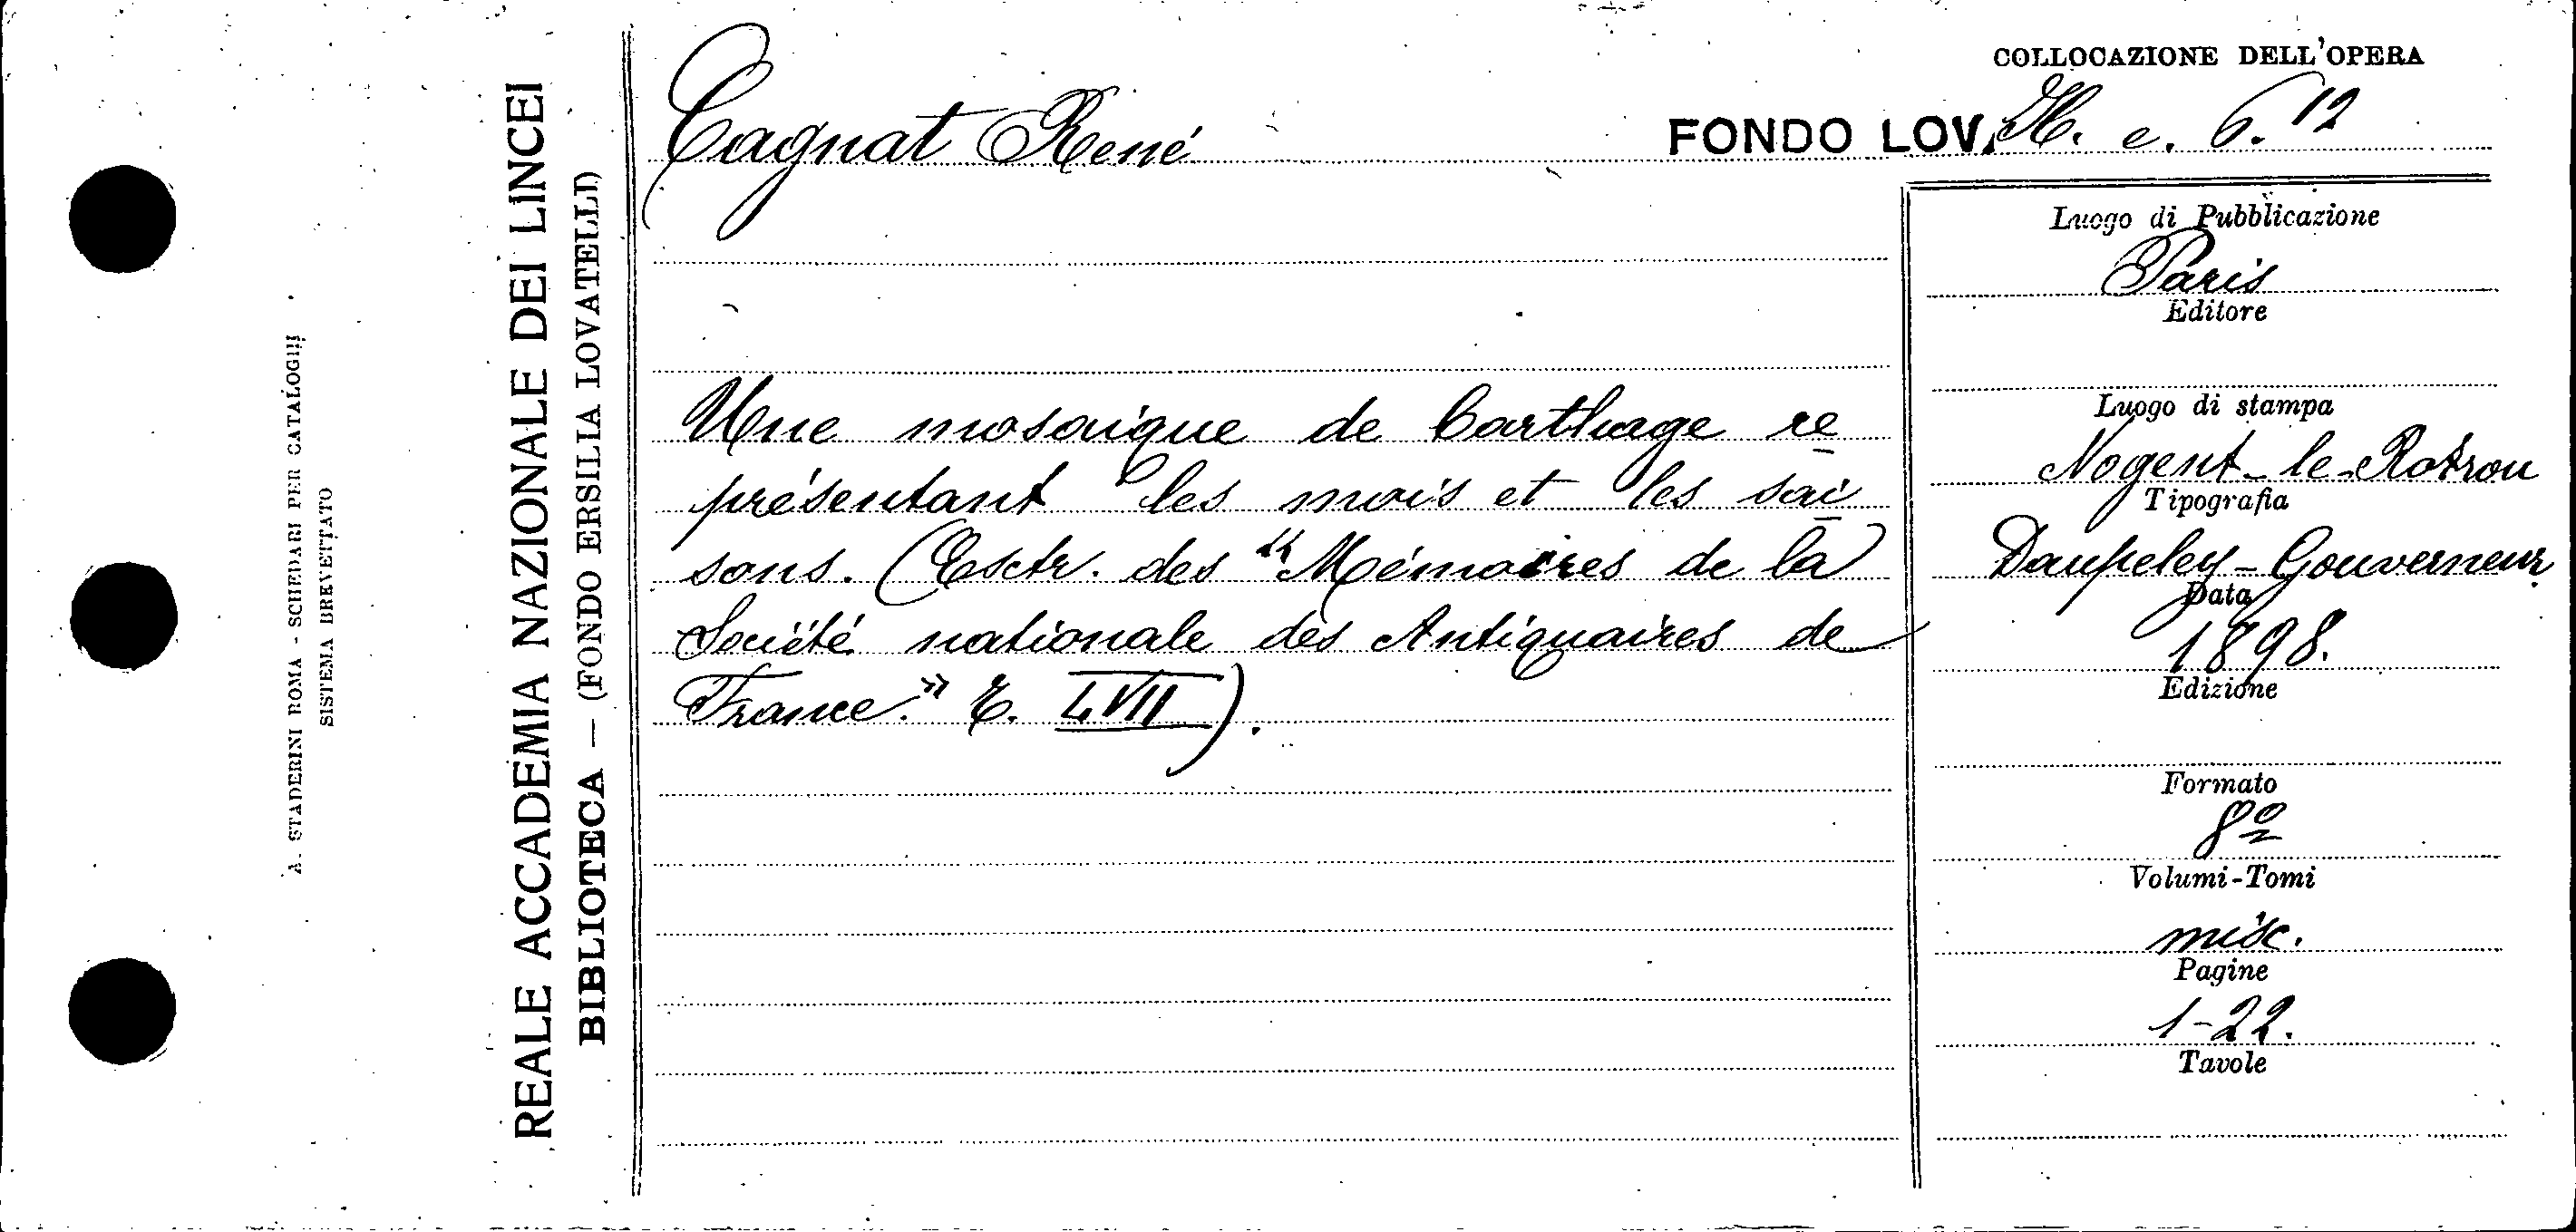 A. STADERINI ROMA - SCHEDARI PER CATALOGHI
SISTEMA BREVETTATO
REALE ACCADEMIA NAZIONALE DEI LINCEI
BIBLIOTECA — (FONDO ERSILIA LOVATELLI)
Cagnat René
COLLOCAZIONE DELL'OPERA
FONDO LOV. H. e. 6. 12
Une mosaique de Carthage re
présentant les mois et les sai
sons. (Esctr. des "Mémoires de la
Société nationale des Antiquaires de
France." T. LVII).
Luogo di Pubblicazione
Paris
Editore
Luogo di stampa
Nogent-le-Rotrou
Tipografia
Daupeley-Gouverneur
Data
1898.
Edizione
Formato
8º
Volumi-Tomi
misc.
Pagine
1-22.
Tavole